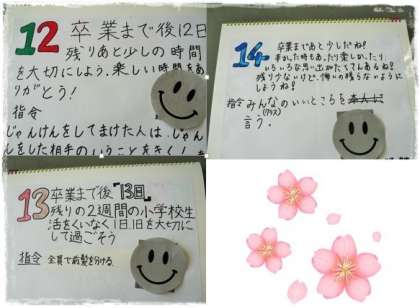 12
卒業まで後12日
残りあと少しの時間
を大切にしよう。楽しい時間をあ
りがとう!
指令
じゃんけんをしてまけた人は、じゃん
けんをした相手のいうことをきく!
14
卒業まであと少しだね!
いろいろな思い出がたくさんあるね!
残り少ないけど、悔いの残らないように
しようね!
指令 みんなのいいところを
言う。
13
卒業まで後「13日」
残りの2週間の小学校生
活をくいなく1日1日を大切に
して過ごそう
指令 全員で前髪を分ける